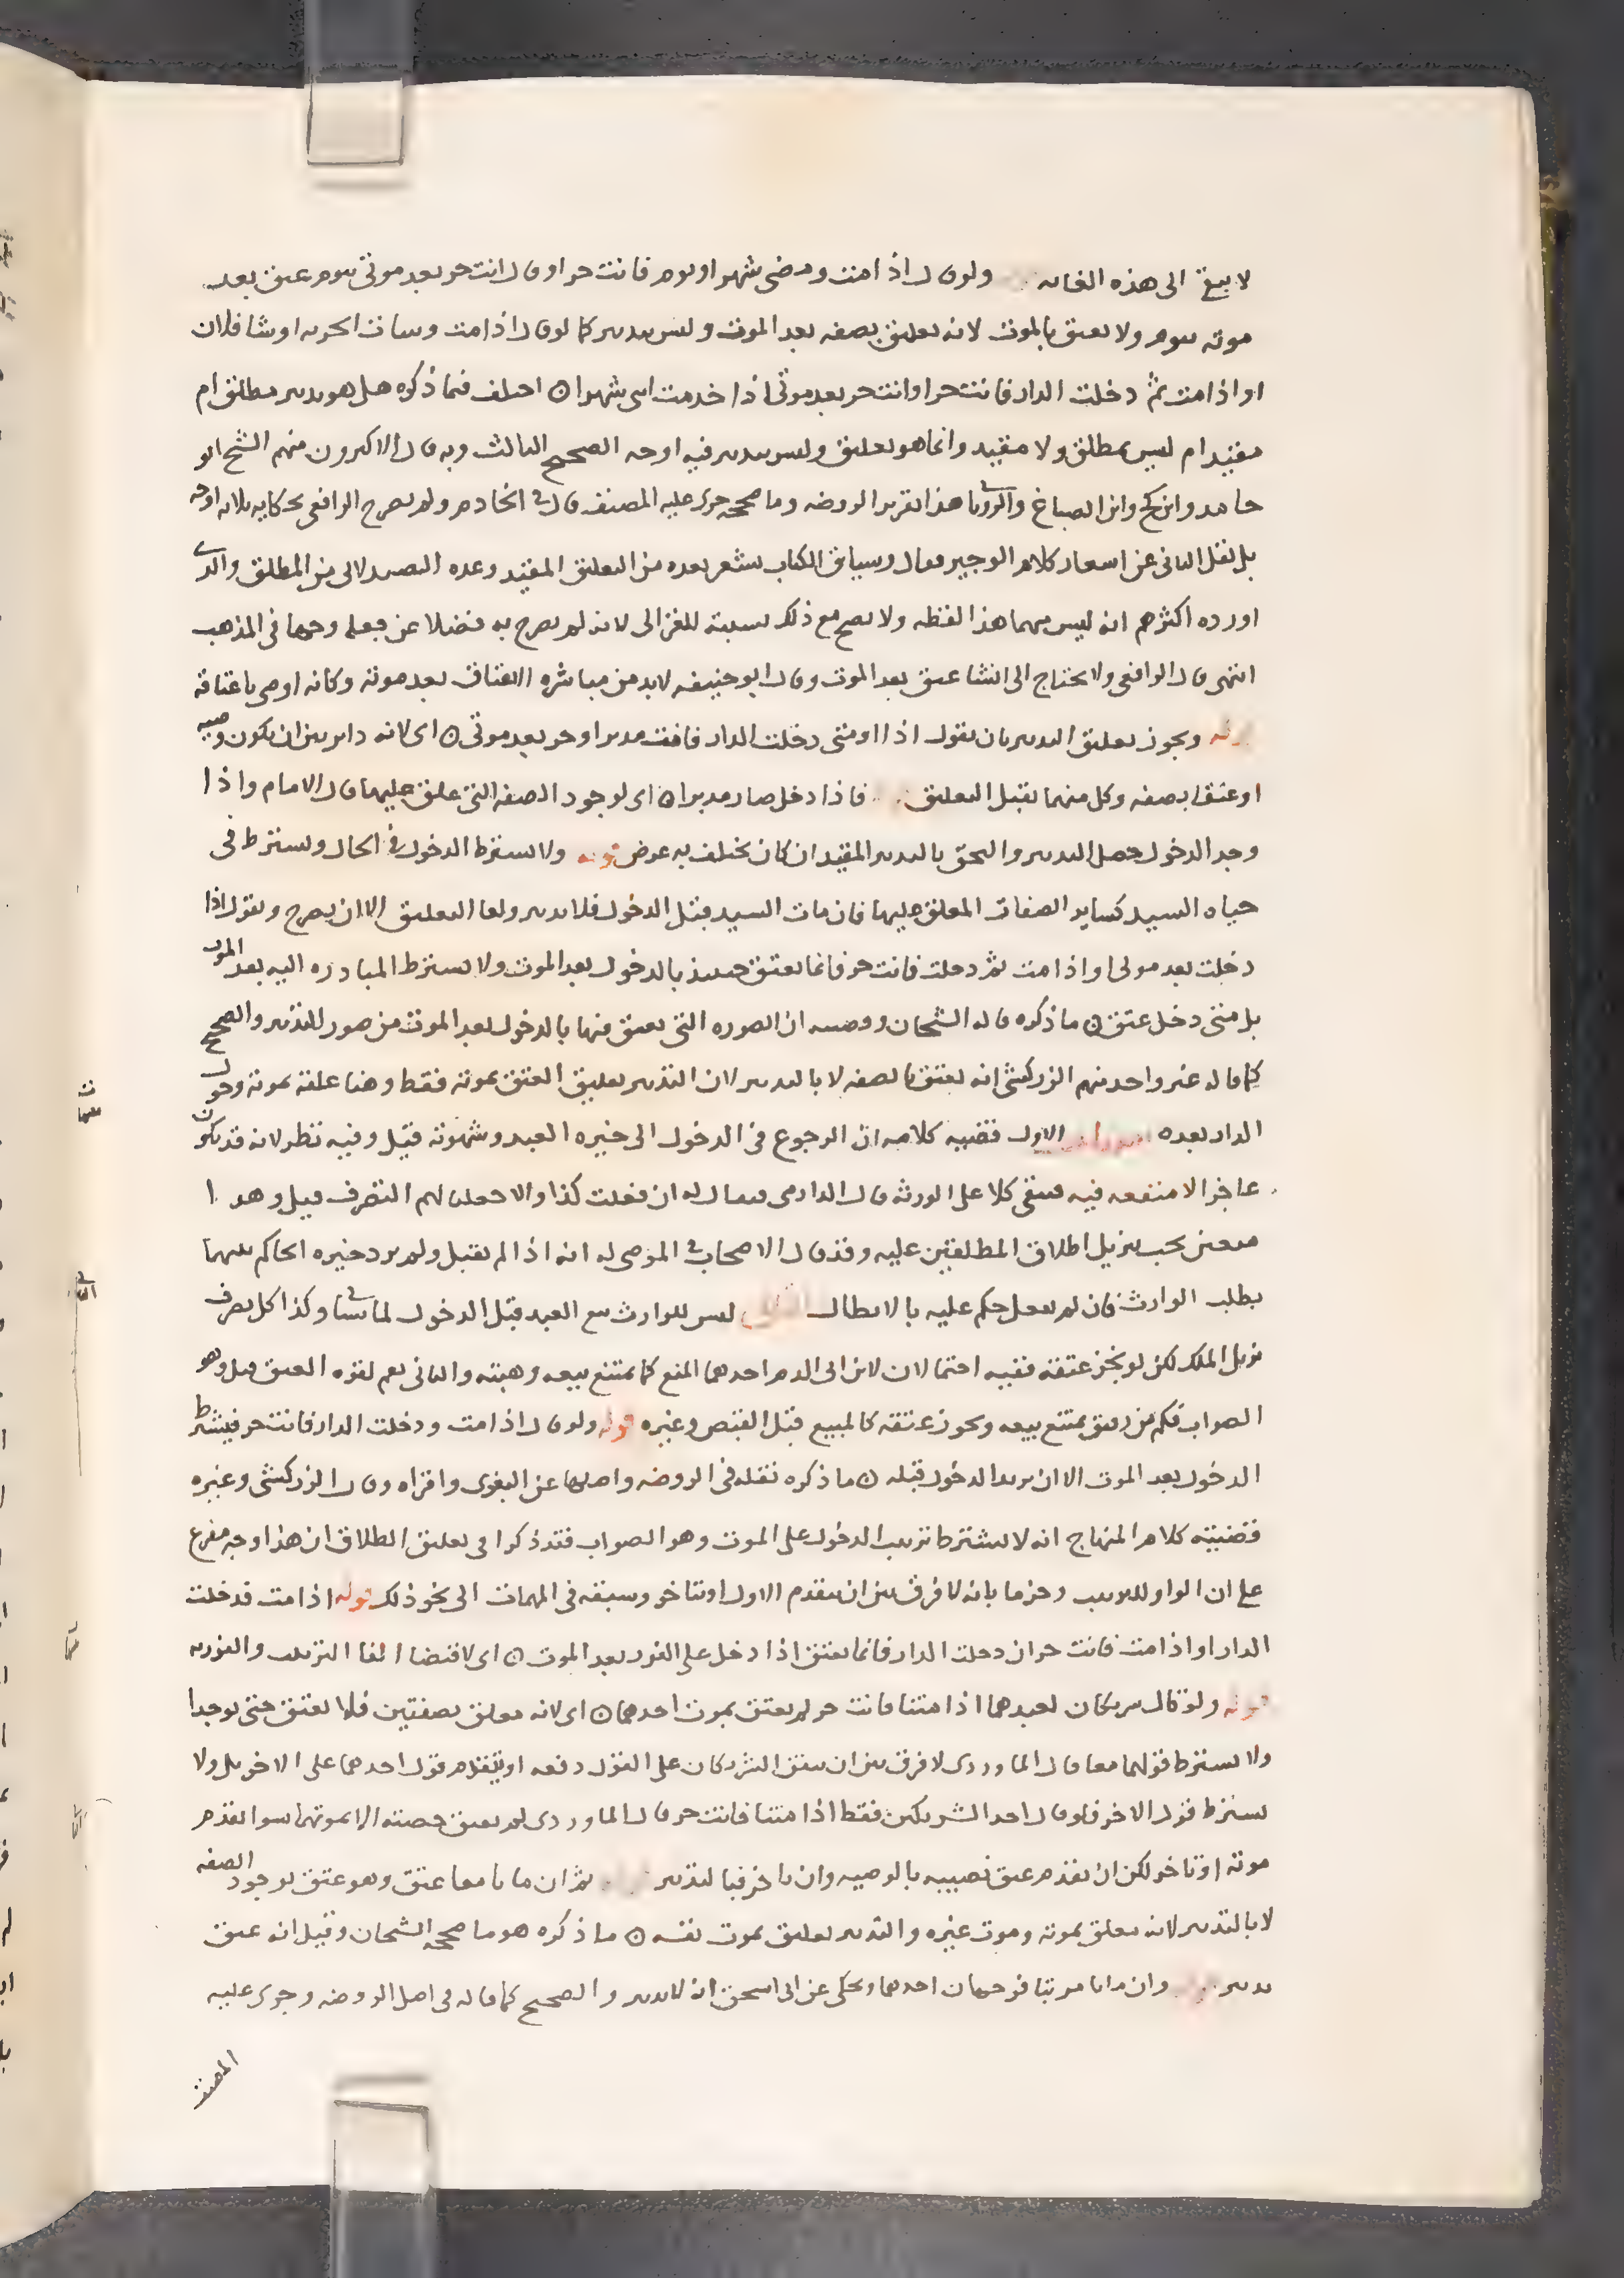 لا يبقى الى هذه الغايه ولو قال اذا مت ومضى شهر او يوم فانت حر او قال انت حر بعد موتى بيوم عتق بعد
موته بيوم ولا يعتق بالموت لانه تعليق بصفه بعد الموت وليس بتدبير كما لو قال اذا مت وشات الحريه او شا فلان
او اذا مت ثم دخلت الدار فانت حر او انت حر بعد موتى اذا خدمت ابنى شهرا ن اختلف فيما ذكره هل هو تدبير مطلق ام
مقيد ام ليس بمطلق ولا مقيد وانما هو تعليق وليس بتدبير فيه اوجه الصحيح الثالث وبه قال الاكثرون منهم الشيخ ابو
حامد وابن كج وابن الصباغ والرويانى هذا تقرير الروضه وما صححه جرى عليه المصنف قال فى الخادم ولم يصرح الرافعى بحكايه ثلاثه اوجه
بل نقل الثانى عن اشعار كلام الوجيز فقال وسياق الكتاب يشعر بعده من التعليق المقيد وعده الصيدلانى من المطلق والذى
اورده اكثرهم انه ليس منهما هذا لفظه ولا يصح مع ذلك نسبته للغزالى لانه لم يصرح به فضلا عن جعله وجها فى المذهب
انتهى قال الرافعى ولا يحتاج الى انشا عتق بعد الموت وقال ابو حنيفه لابد من مباشره الاعتاق بعد موته وكانه اوصى باعتاقه
قوله ويجوز تعليق التدبير بان يقول اذا او متى دخلت الدار فانت مدبر او حر بعد موتى ن اى لانه داير بين ان يكون وصيه
او عتقا بصفه وكل منهما يقبل التعليق فاذا دخل صار مدبرا ن اى لوجود الصفه التى علق عليها قال الامام واذا
وجد الدخول حصل التدبير والتحق بالتدبير المقيد ان كان يختلف به غرض قوله ولا يشترط الدخول فى الحال ويشترط فى
حياه السيد كساير الصفات المعلق عليها فان مات السيد قبل الدخول فلا تدبير ولغا التعليق الا ان يصرح ويقول اذا
دخلت بعد موتى او اذا مت ثم دخلت فانت حر فانما يعتق حينيذ بالدخول بعد الموت ولا يشترط المبادره اليه بعد الموت
بل متى دخل عتق ن ما ذكره قاله الشيخان وقضيته ان الصوره التى يعتق فيها بالدخول بعد الموت من صور التدبير والصحيح
كما قاله غير واحد منهم الزركشى انه يعتق بالصفه لا بالتدبير لان التدبير تعليق العتق بموته فقط وهنا علقه بموته ودخول
الدار بعده الاول قضيه كلامه ان الرجوع فى الدخول الى خيره العبد وشهوته قيل وفيه نظر لانه قد يكون
عاجزا لا منفعه فيه فيبقى كلا على الورثه قال الدارمى فيقال له ان فعلت كذا والا جعلنا لهم التصرف قيل وهذا
متعين يجب تنزيل اطلاق المطلقين عليه وقد قال الاصحاب فى الموصى له انه اذا لم يقبل ولم يرد خيره الحاكم بينهما
بطلب الوارث فان لم يفعل حكم عليه بالابطال الثانى ليس للوارث بيع العبد قبل الدخول لما شا وكذا كل تصرف
يزيل الملك لكن لو نجز عتقه ففيه احتمالان لابن ابى الدم احدهما المنع كما يمتنع بيعه وهبته والثانى نعم لقوه العتق قيل وهو
الصواب فكم من رقيق يمتنع بيعه ويجوز عتقه كالمبيع قبل القبض وغيره قوله ولو قال اذا مت ودخلت الدار فانت حر فيشترط
الدخول بعد الموت الا ان يريد الدخول قبله ن ما ذكره نقله فى الروضه واصلها عن البغوى واقراه وقال الزركشى وغيره
قضيته كلام المنهاج انه لا يشترط ترتيب الدخول على الموت وهو الصواب فقد ذكرا فى تعليق الطلاق ان هذا وجه مفرع
على ان الواو للترتيب وجزما بانه لا فرق بين ان يتقدم الاول او يتاخر وسبقه فى المهمات الى نحو ذلك قوله اذا مت فدخلت
الدار او اذا مت فانت حر ان دخلت الدار فانما يعتق اذا دخل على الفور بعد الموت ن اى لاقتضا الفا الترتيب والفوريه
قوله ولو قال شريكان لعبدهما اذا متنا فانت حر لم يعتق بموت احدهما ن اى لانه معلق بصفتين فلا يعتق حتى يوجدا
ولا يشترط قولهما معا قال الماوردى لا فرق بين ان يتفق الشريكان على القول دفعه او يتقدم قول احدهما على الاخر بل ولا
يشترط قول الاخر فلو قال احد الشريكين فقط اذا متنا فانت حر قال الماوردى لم يعتق حصته الا بموتهما سوا تقدم
موته او تاخر لكن ان تقدم عتق نصيبه بالوصيه وان تاخر فبالتدبير ثم ان ماتا معا عتق وهو عتق لوجود الصفه
لا بالتدبير لانه معلق بموته وموت غيره والتدبير تعليق بموت نفسه ن ما ذكره هو ما صححه الشيخان وقيل انه عتق
تدبير وان ماتا مرتبا فوجهان احدهما ويحكى عن ابى اسحق انه لا تدبير والصحيح كما قاله فى اصل الروضه وجرى عليه
المصنف